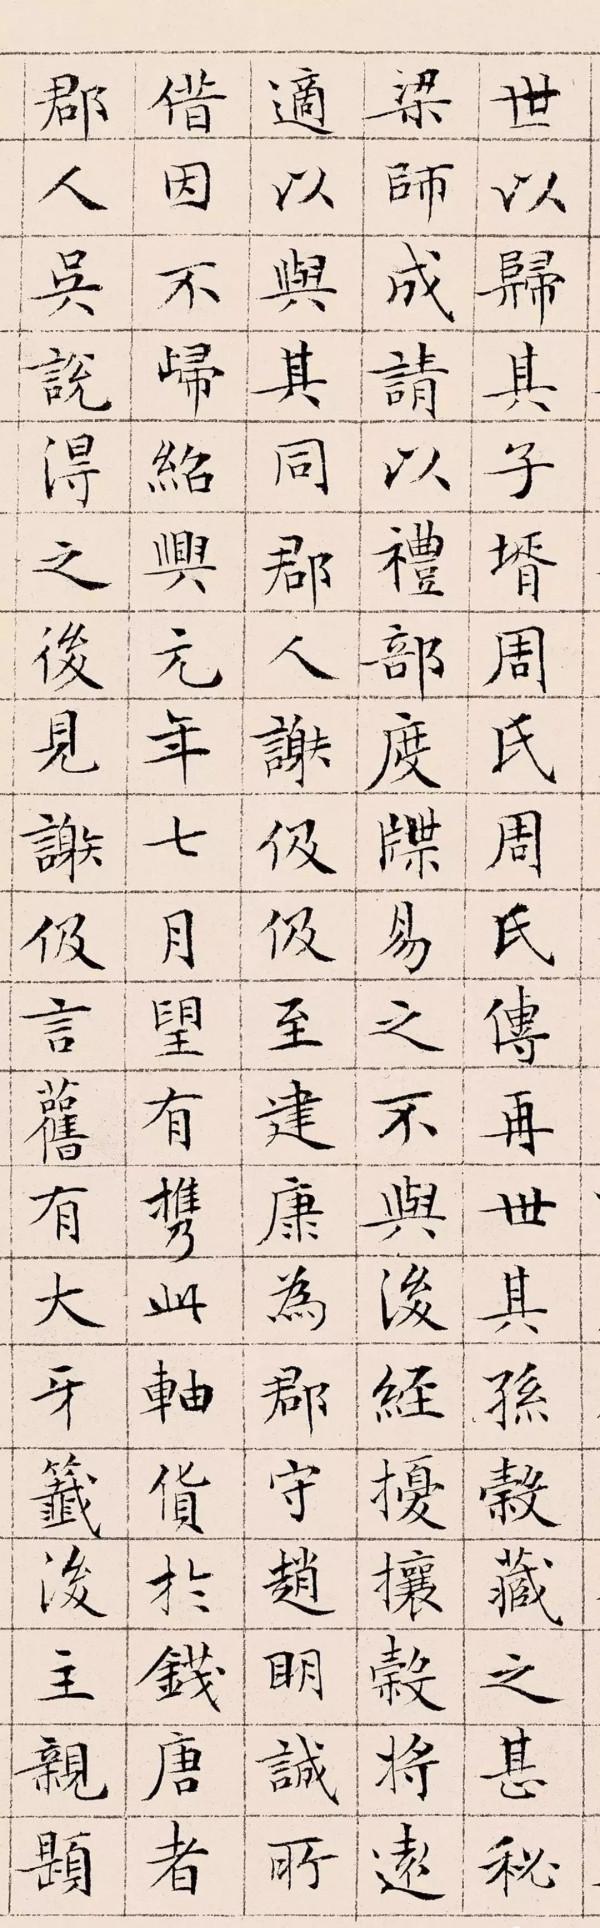 世以歸其子壻周氏周氏傳再世其孫糓藏之甚秘
梁師成請以禮部度牒易之不與後経擾攘糓将遠
適以與其同郡人謝伋伋至建康為郡守趙明誠所
借因不歸紹興元年七月望有攜此軸貨於錢唐者
郡人吳說得之後見謝伋言舊有大牙籤後主親題